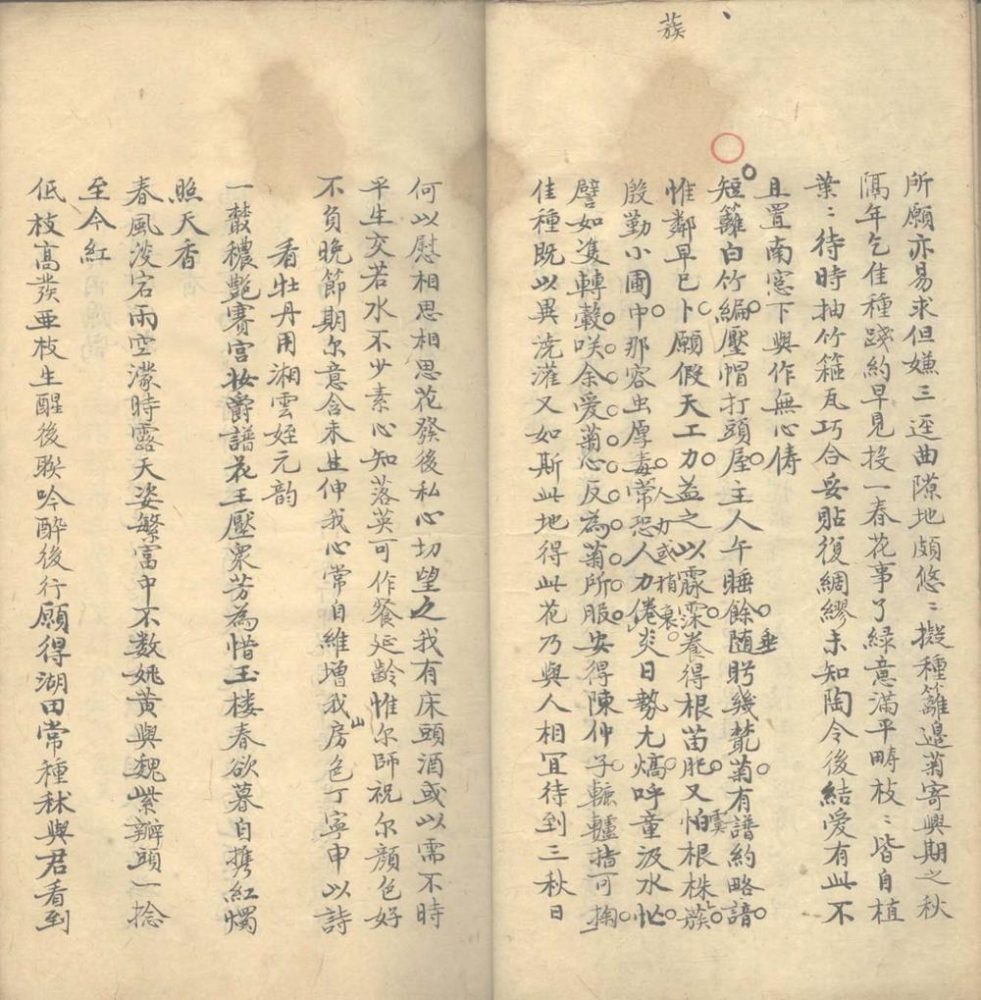 蔟
所願亦易求但嫌三逕曲隙地頗悠〻擬種籬邊菊寄興期之秋
隔年乞佳種踐約早見投一春花事了緑意滿平疇枝〻皆自植
葉〻待時抽竹籬瓦巧合妥貼復綢繆未知陶令後結愛有此不
且置南窓下與作無心儔
短籬白竹編壓帽打頭屋主人午睡餘随盻幾蓛菊有譜約略諳
垂
惟鄰早已卜願假天工力益之以霢霂養得根苗肥又怕根株蔟
虞
殷勤小圃中那容虫厚毒常恐人力倦炎日勢尤熇呼童汲水忙
人力或稍衰
譬如隻轉轂咲余爱菊心反為菊所服安得陳仲子轆轤桔可掬
佳種既以異澆灌又如斯此地得此花乃與人相宜待到三秋日
何以慰相思相思花發後私心切望之我有床頭酒或以需不時
平生交若水不少素心知落英可作餐延齡惟尔師祝尔顏色好
不負晚節期尔意含未吐伸我心常自維增我房色丁寧申以詩
山
看牡丹用湘雲姪元韵
一叢穠艶賽宫妝爵譜花王壓衆芳為惜玉楼春欲暮自携紅燭
照天香
春風淡宕雨空濛時露天姿繁富中不数姚黃與魏紫瓣頭一捻
至今紅
低枝高發亜枝生醒後聯吟醉後行願得湖田常種秫與君看到